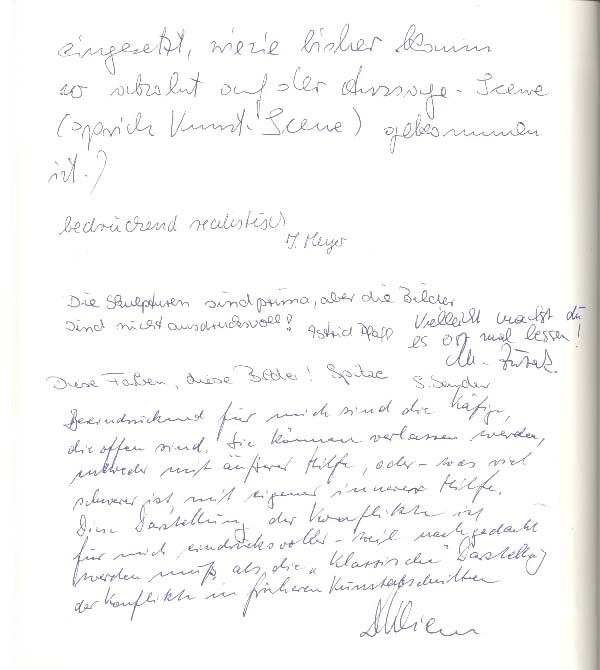 eingesetzt, wie sie bisher kaum
so absolut auf der Aussage-Scene
(sprich Kunst-Scene) gekommen
ist.)
bedrückend realistisch
J. Meyer
Die Skulpturen sind prima, aber die Bilder
sind nicht ausdrucksvoll! Astrid Pfaff
Vielleicht machst du
es erst mal besser!
M.
Diese Farben, diese Bilder! Spitze S. Sander
Beeindruckend für mich sind die Käfige,
die offen sind. Sie können verlassen werden,
entweder mit äußerer Hilfe, oder – was viel
schwerer ist, mit eigener innerer Hilfe.
Diese Darstellung der Konflikte ist
für mich eindrucksvoller – weil nachgedacht
werden muß als die „klassische“ Darstellung
der Konflikte in früheren Kunstabschnitten